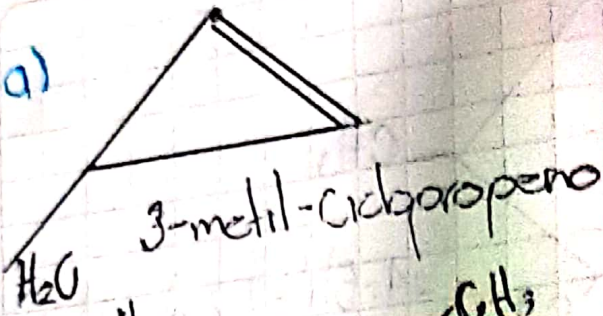 a)
3-metil-Ciclopropeno
H₂C
CH₃